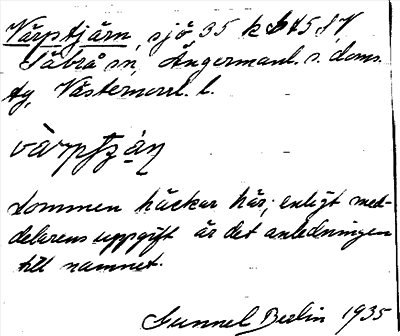 Värptjärn, sjö 35 k 45 SV
Säbrå sn, Ångermanl. s. doms.
tg, Västernorrl. l.
värptjạ̈ṇ
Lommen häckar här; enligt med-
delarens uppgift är det anledningen
till namnet.
Gunnel Berlin 1935